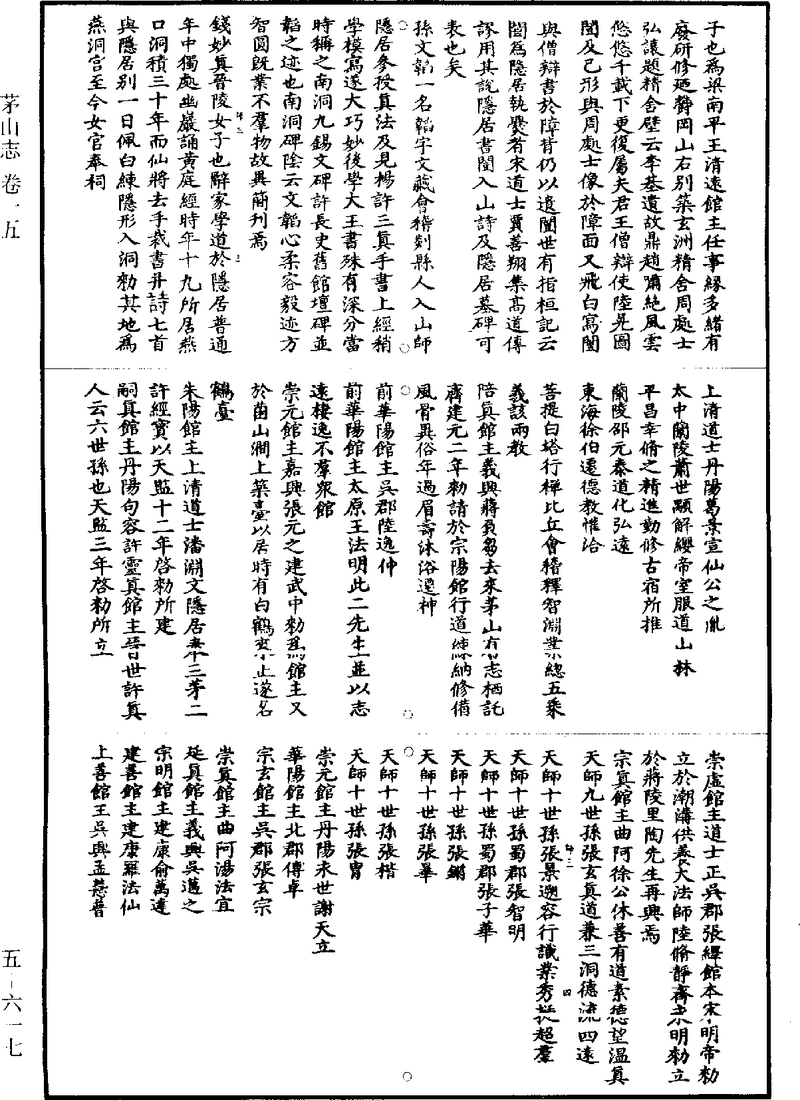 茅山志 卷一五
子也為梁南平王清遠館主任事緣多緒有
廢研修迺鬱岡山右別築玄洲精舍周處士
弘讓題精舍壁云李基遺故鼎趙躋絕風雲
悠悠千載下更復屬夫君王僧辯使陸晃圖
闓及已形與周處士像於障面又飛白寫闓
與僧辯書於障背仍以遺闓世有指桓記云
闓為隱居執爨者宋道士賈善翔集高道傳
謬用其說隱居書闓入山詩及隱居墓碑可
表也矣
孫文韜一名韜字文藏會稽剡縣人入山師
隱居參授真法及見楊許三真手書上經稍
學模寫遂大巧妙後學大王書殊有深分當
時稱之南洞九錫文碑許長史舊館壇碑並
韜之迹也南洞碑陰云文韜心柔容毅迹方
智圓既業不羣物故異簡刋焉
錢妙真晉陵女子也辭家學道於隱居普通
年中獨處幽巖誦黃庭經時年十九所居燕
口洞積三十年而仙將去手裁書并詩七首
與隱居別一日佩白練隱形入洞勑其地為
燕洞宫至今女官奉祠
上清道士丹陽葛景宣仙公之胤
太中蘭陵蕭世顯解纓帝室服道山林
平昌幸脩之精進勤修古宿所推
蘭陵邵元泰道化弘遠
東海徐伯還德教惟洽
菩提白塔行禪比丘會稽釋智淵業總五乘
義該兩教
陪真館主義興蔣負芻去來茅山有志栖託
齊建元二年勑請於宗陽館行道練納修備
風骨異俗年過眉壽沐浴遷神
前華陽館主吳郡陸逸仲
前華陽館主太原王法明此二先生並以志
遠棲逸不羣衆館
崇元館主嘉興張元之建武中勑為館主又
於菌山澗上築臺以居時有白鶴來止遂名
鶴臺
朱陽館主上清道士潘淵文隱居奉三茅二
許經寶以天監十二年啓勑所建
嗣真館主丹陽句容許靈真館主晉世許真
人云六世孫也天監三年啓勑所立
崇虛館主道士正吳郡張繹館本宋明帝勑
立於潮溝供養大法師陸脩靜齊永明勑立
於蔣陵里陶先生再興焉
宗真館主曲阿徐公休善有道素德望温真
天師九世孫張玄真道兼三洞德流四遠
天師十世孫張景遡容行識業秀挺超羣
天師十世孫蜀郡張智明
天師十世孫蜀郡張子華
天師十世孫張鏘
天師十世孫張畢
天師十世孫張楷
天師十世孫張冑
崇元館主丹陽永世謝天立
華陽館主北郡傅卓
宗玄館主吳郡張玄宗
崇真館主曲阿湯法宜
延真館主義興吳邁之
宗明館主建康俞萬達
建善館主建康羅法仙
上善館王吳興孟慧普
五－六一七